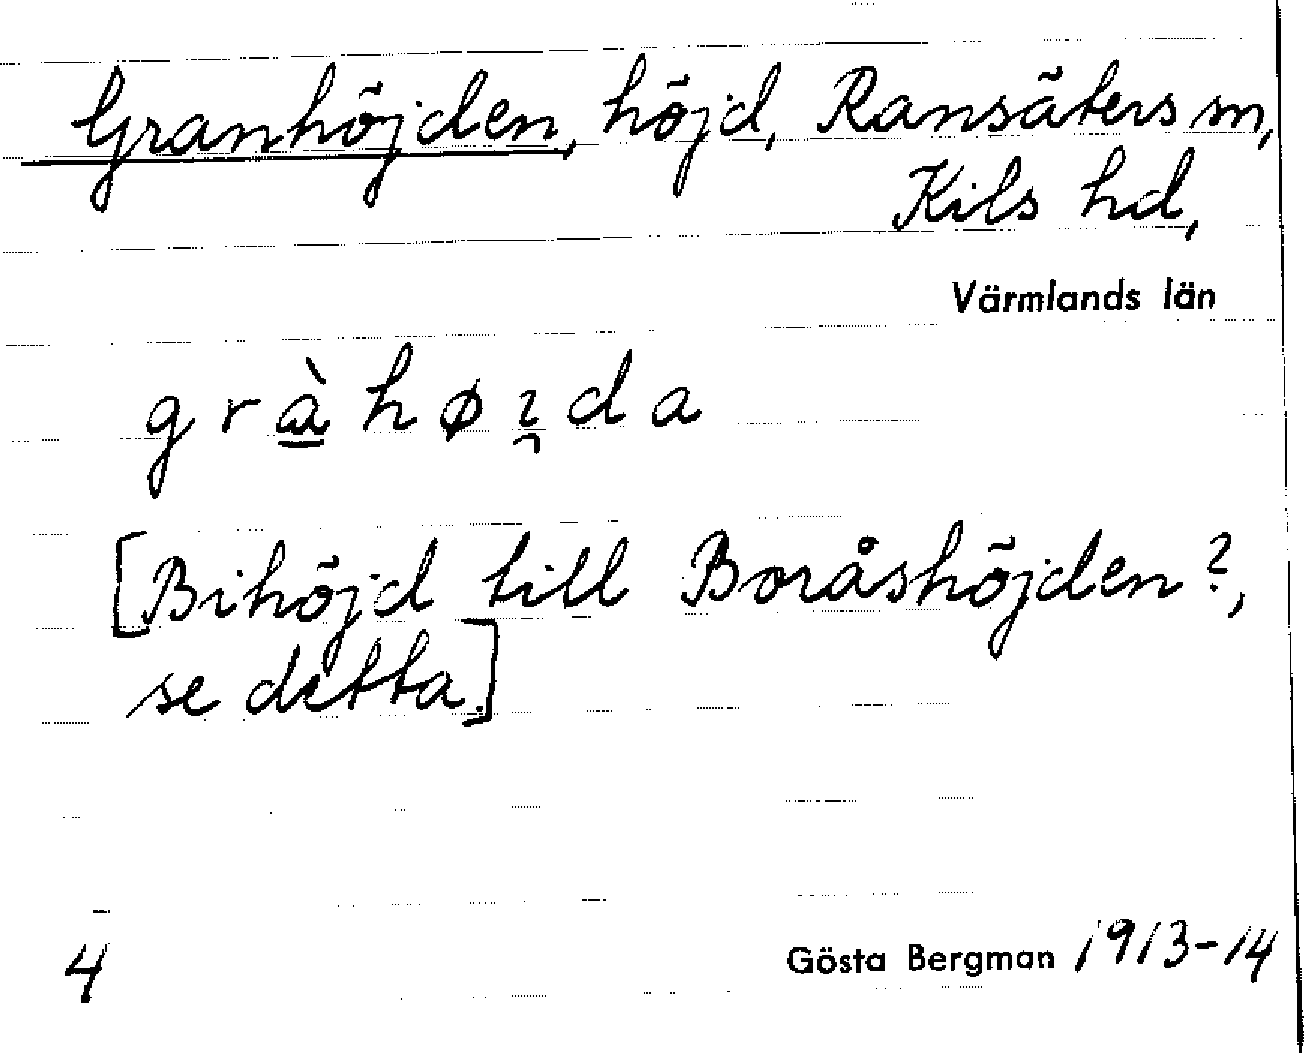 Granhöjden, höjd, Ransäters sn,
Kils hd,
Värmlands län
g r à̲ h ø ı̯ d a
[Bihöjd till Boråshöjden?,
se detta.]
4
Gösta Bergman 1913-14